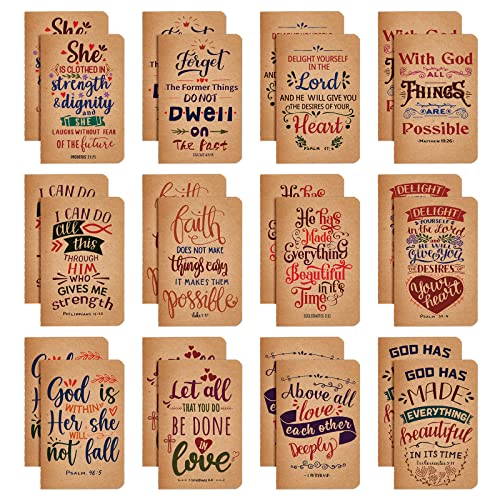 She
She
IS CLOTHED IN
strength
& dignity
SHE
LAUGHS WITHOUT FEAR
OF THE future
PROVERBS 31:25
Forget
The Former Things
DO NOT
Dwell
on
The Past
DELIGHT YOURSELF
DELIGHT YOURSELF
IN THE
Lord
AND HE WILL GIVE YOU
THE DESIRES OF YOUR
Heart
PSALM 37:4
With God
With God
ALL
THINGS
ARE
Possible
MATTHEW 19:26
I CAN DO
I CAN DO
all
this
THROUGH
HIM
WHO
GIVES ME
strength
PHILIPPIANS 4:13
faith
DOES NOT MAKE
things easy
IT MAKES THEM
possible
Luke 1:37
He Has
Made
Everything
Beautiful
in it's
Time
ECCLESIASTES 3:11
DELIGHT
DELIGHT
YOURSELF
in the Lord
HE WILL
Give You
THE
DESIRES
OF
Your
heart
God is
God is
WITHIN
Her she
WILL
not fall
PSALM 46:5
Let all
THAT YOU DO
BE DONE
IN
love
Above all
love
each other
Deeply
1 PETER 4:8
GOD HAS
GOD HAS
MADE
EVERYTHING
beautiful
IN ITS TIME
Ecclesiastes 3:11